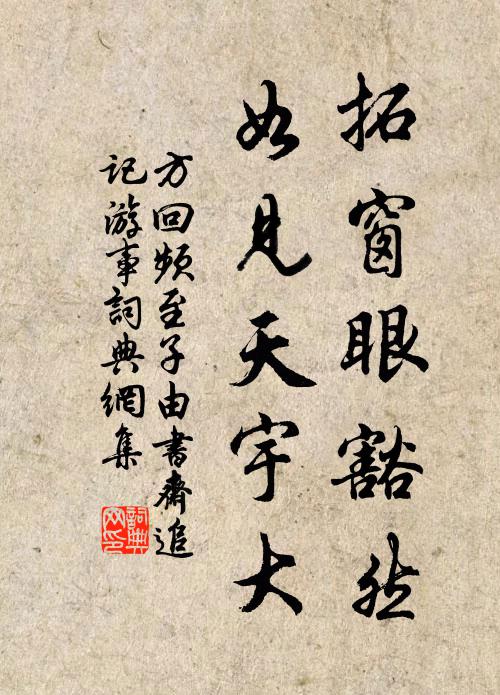 拓窗眼豁然
如見天宇大
方回頻至子由書齋追
記游事詞典網集
詞典网印